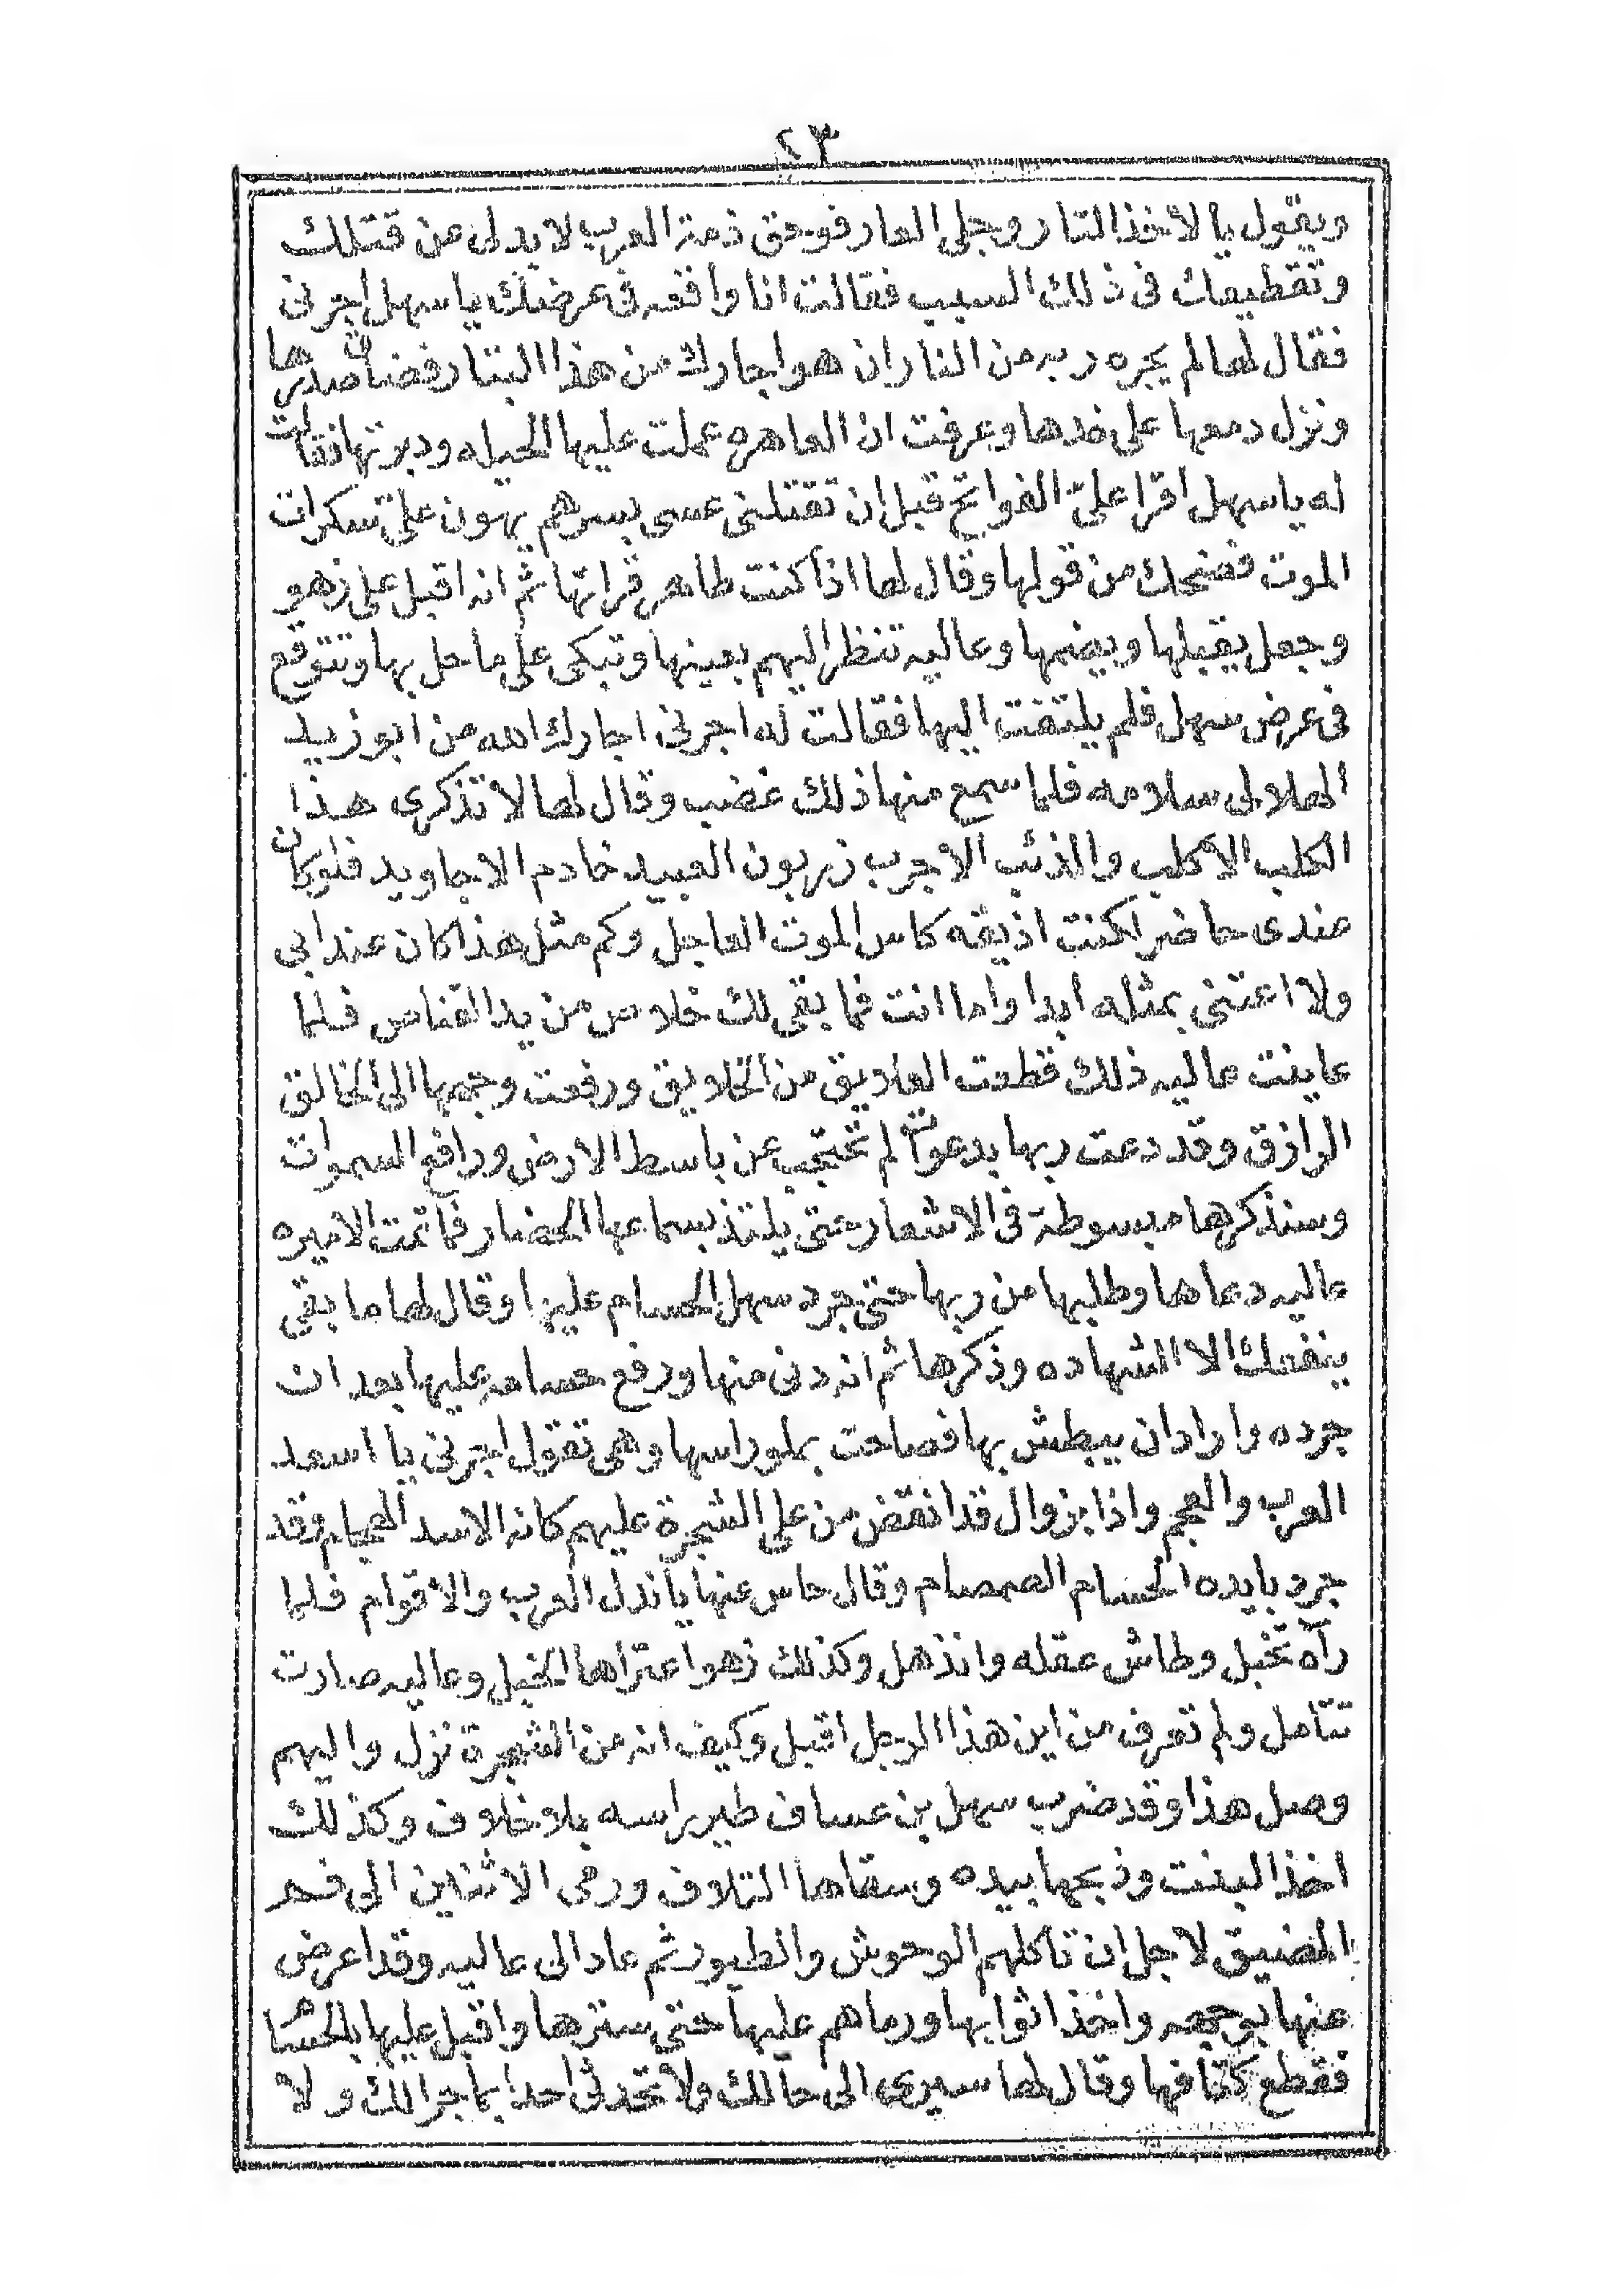 ٢٣
ويقول يا لاخذ التار وجلى العار فوحق ذمة العرب لا بد لى من قتلك
وتقطيعك فى ذلك السبب فقالت انا واقعه فى عرضك يا سهل اجرنى
فقال لها لم يجره ربه من النار ان هو اجارك من هذا البتار فضاق صدرها
ونزل دمعها على خدها وعرفت ان العاهره عملت عليها الحيله ودبرتها فقالت
له يا سهل اقرا علىّ الفواتح قبل ان تقتلنى عسى بسرهم يهون علىّ سكرات
الموت فضحك من قولها وقال لها اذا كنت طاهر قراتها ثم انه اقبل على زهو
وجعل يقبلها ويضمها وعاليه تنظر اليهم بعينها وتبكى على ما حل بها وتتوقع
فى عرض سهل فلم يلتفت اليها فقالت له اجرنى اجارك الله من ابو زيد
الهلالى سلامه فلما سمع منها ذلك غضب وقال لها لا تذكرى هذا
الكلب الاكلب والذئب الاجرب زربون العبيد خادم الاجاويد فلو كان
عندى حاضر لكنت اذيقه كاس الموت العاجل وكم مثل هذا كان عند ابى
ولا اعتنى بمثله ابدا واما انت فما بقى لك خلاص من يد القناص فلما
عاينت عاليه ذلك قطعت العلايق من الخلايق ورفعت وجهها الى الخالق
الرازق وقد دعت ربها بدعوات لم تحتجب عن باسط الارض ورافع السموات
وسنذكرها مبسوطة فى الاشعار حتى يلتذ بسماعها الحضار فما تمت الاميره
عاليه دعاها وطلبها من ربها حتى جرد سهل الحسام عليها وقال لها ما بقى
ينفعك الا الشهاده وذكرها ثم انه دنى منها ورفع حسامه عليها بعد ان
جرده وارادان يبطش بها فصاحت بملو راسها وهى تقول اجرنى يا اسعد
العرب والعجم واذا بزوال قد انقض من على الشجرة عليهم كانه الاسد الهجام وقد
جرد بايده الحسام الصمصام وقال حاس عنها يا نذل العرب والاقوام فلما
رآه تخبل وطاش عقله وانذهل وكذلك زهو اعتراها الخبل وعاليه صارت
تتامل ولم تعرف من اين هذا الرجل اقبل وكيف انه من الشجرة نزل واليهم
وصل هذا وقد ضرب سهل بن عساف طير راسه بلا خلاف وكذلك
اخذ البنت وذبحها بيده وسقاها التلاف ورمى الاثنين الى فحر
المضيق لاجل ان تاكلهم الوحوش والطيور ثم عاد الى عاليه وقد اعرض
عنها بوجهه واخذ اثوابها ورماهم عليها حتى سترها واقبل عليها بالحسام
فقطع كتافها وقال لها سيرى الى حالك ولا تحدثى احدا بما جرا لك ولا